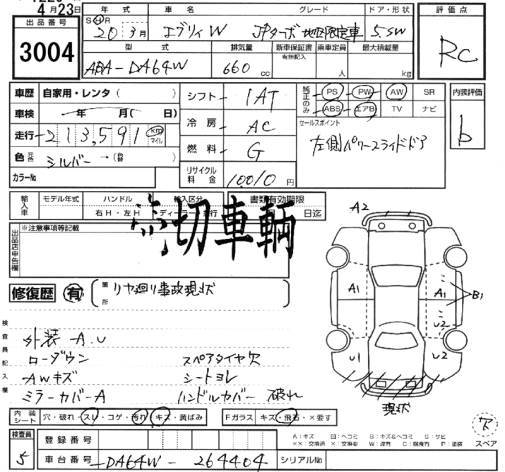 4月23日
出品番号 3004
年式 車名 グレード ドア・形状
S H 20年3月 エブリィW JPターボ 地区限定車 5.SW
型式 排気量 新車保証書 有無記入 乗車定員 最大積載量
ABA-DA64W 660 cc 人 kg
評価点 RC
車歴 自家用・レンタ( )
車検 年 月( 日)
走行 213,591 Km マイル
色 シルバー
カラーNo
シフト 1AT
冷房 AC
燃料 G
リサイクル料金 10010円
純正のみ PS PW AW SR
ABS エアB TV ナビ
セールスポイント
左側パワースライドドア
内装評価 b
輸入車 モデル年式 ハンドル 輸入区分 書類有効期限
右H・左H ディーラー・並行 日迄
出品店申告欄 ※注意事項等記載
切車輌
修復歴 有 箇所 リヤ廻り事故現状
検査員記入欄
外装-A.U
ローダウン スペアタイヤ欠
AWキズ シートヨレ
ミラーカバーA ハンドルカバー破れ
A2
A1 A1 B1
U2
U1 U2
現状
内装シート 穴・破れ・スリ・コゲ・汚れ・キズ・黄ばみ
Fガラス キズ・飛石・×要す
検査員 5
登録番号
車台番号 DA64W-264404 シリアルNo
スペア